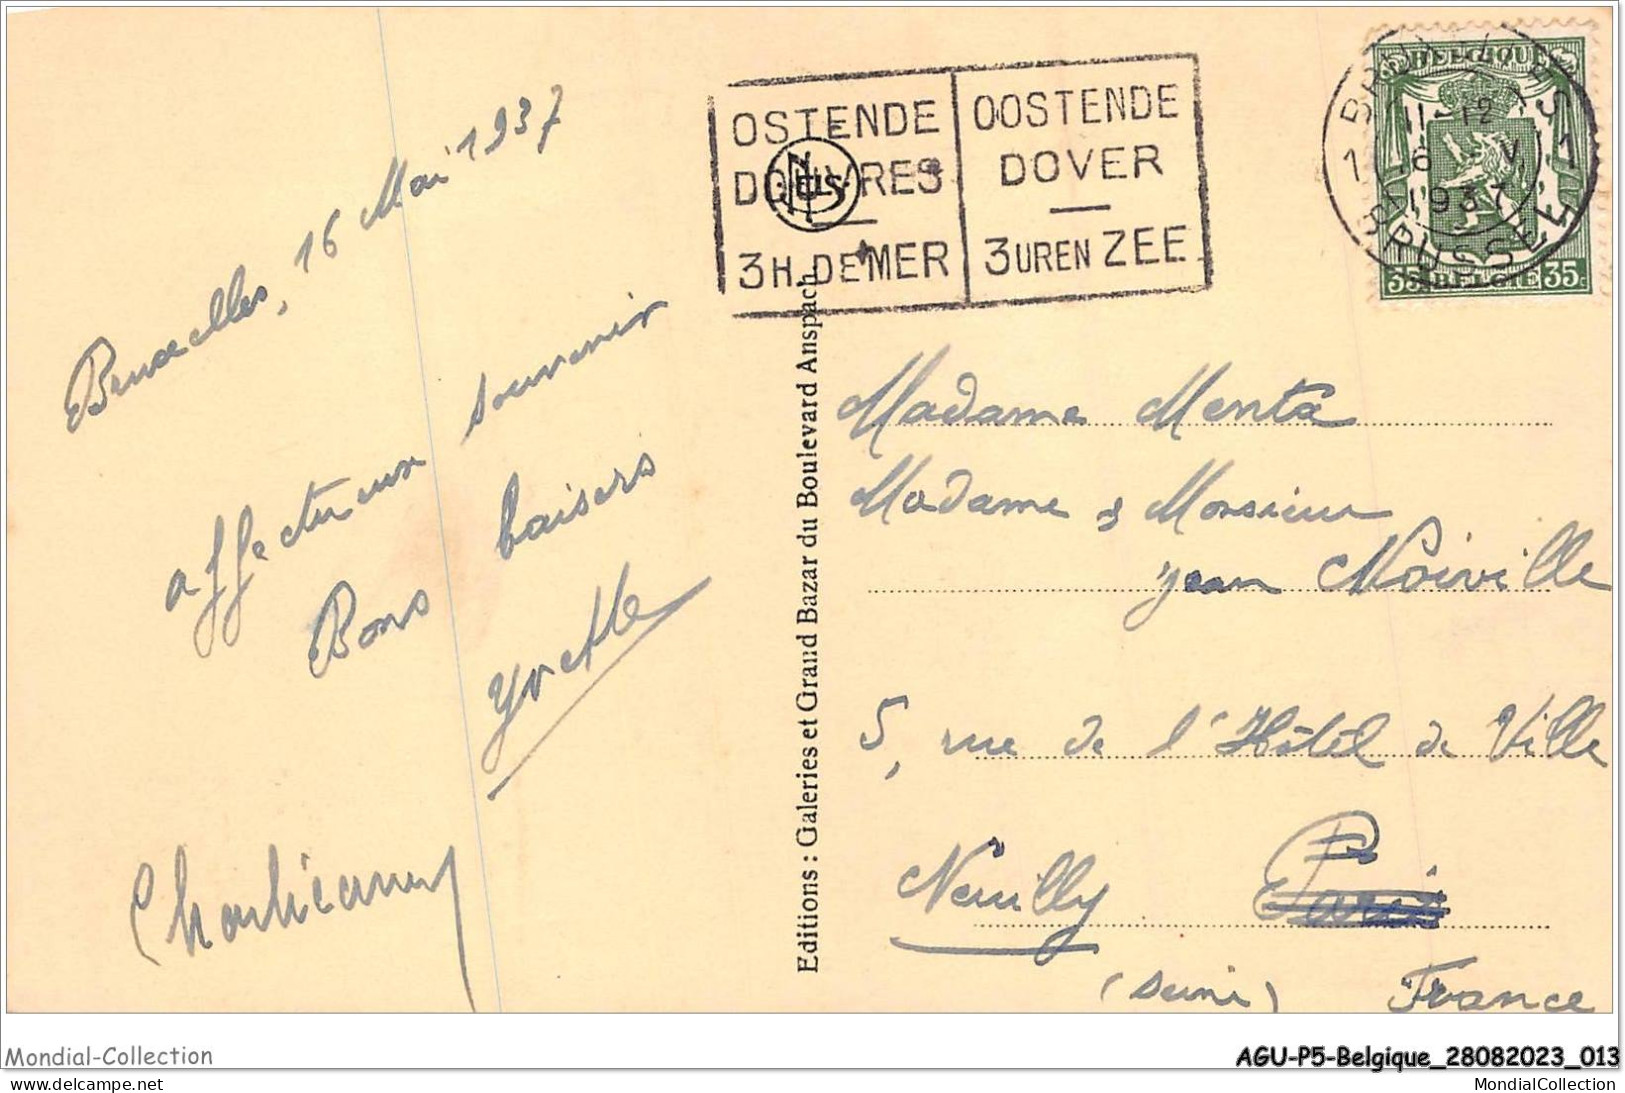 Bruxelles, 16 Mai 1937
affectueux souvenir
Bons baisers
Yvette
OSTENDE
DOUVRES
3H. DE MER
OOSTENDE
DOVER
3UREN ZEE
NELS
BRUXELLES 1
11-12
16 V
1937
1 BRUSSEL
BELGIQUE
35 BELGIE 35
Editions : Galeries et Grand Bazar du Boulevard Anspach
Madame Menta
Madame & Monsieur
Jean Noiville
5, rue de l'Hôtel de Ville
Neuilly Paris
(Seine) France
Mondial-Collection
AGU-P5-Belgique_28082023_013
www.delcampe.net
MondialCollection